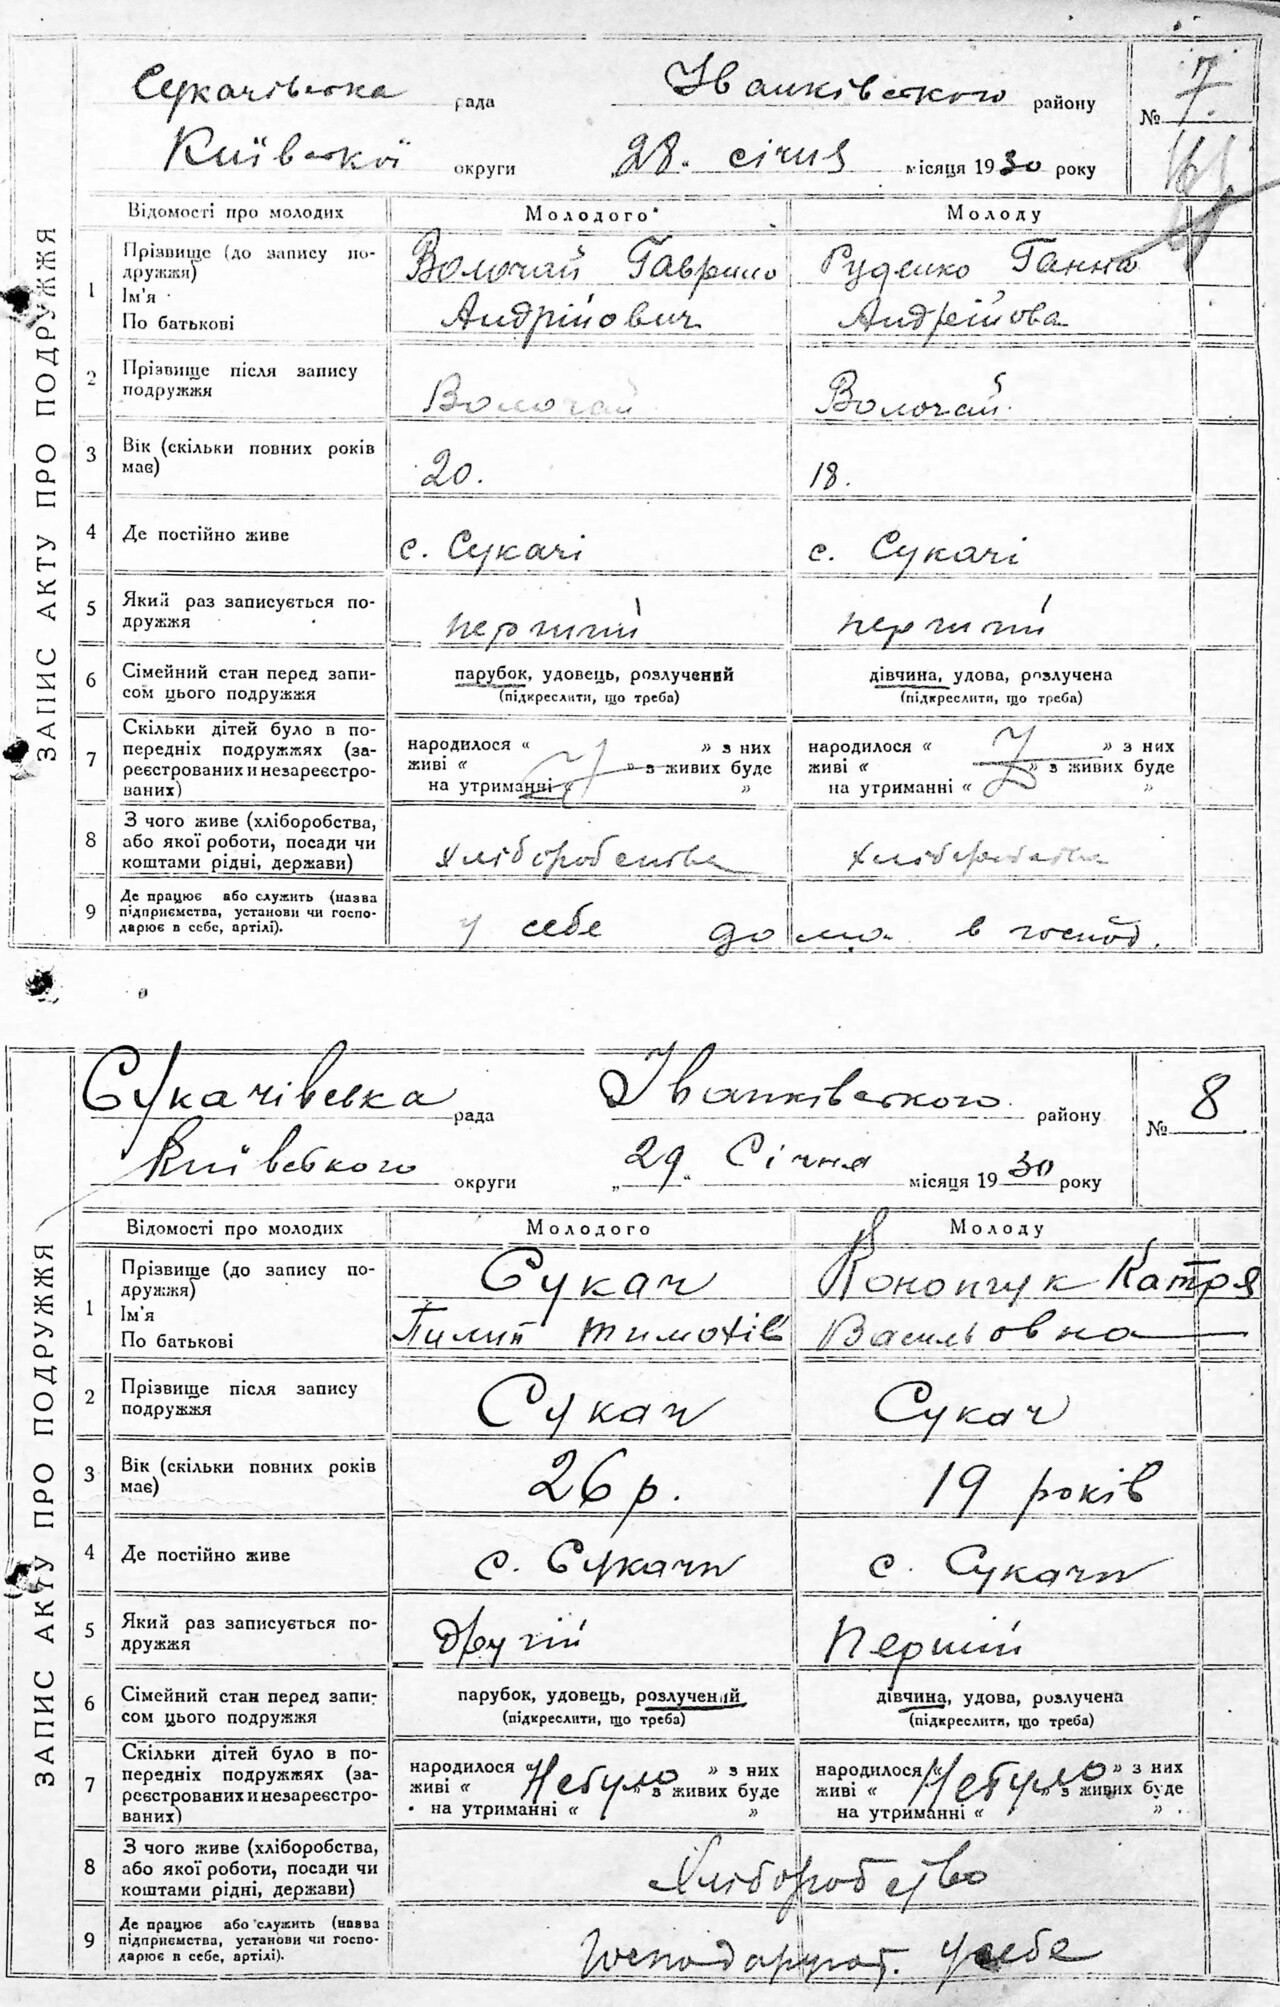 ЗАПИС АКТУ ПРО ПОДРУЖЖЯ
Сукачівська рада Іванківського району № 7
Київської округи 28. січня місяця 1930 року
Відомості про молодих Молодого Молоду
1 Прізвище (до запису по- Волочай Гаврило Руденко Ганна
дружжя)
Ім'я
По батькові Андрійович Андрейова
2 Прізвище після запису
подружжя Волочай Волочай
3 Вік (скільки повних років
має) 20. 18.
4 Де постійно живе с. Сукачі с. Сукачі
5 Який раз записується по-
дружжя перший перший
6 Сімейний стан перед запи- парубок, удовець, розлучений дівчина, удова, розлучена
сом цього подружжя (підкреслити, що треба) (підкреслити, що треба)
7 Скільки дітей було в по- народилося „ " з них народилося „ " з них
передніх подружжях (за- живі „ " з живих буде живі „ " з живих буде
реєстрованих и незареєстро- на утриманні „ " на утриманні „ "
ваних)
8 З чого живе (хліборобства,
або якої роботи, посади чи
коштами рідні, держави) Хліборобства Хліборобства
9 Де працює або служить (назва
підприємства, установи чи госпо-
дарює в себе, артілі). у себе дома в господ.
ЗАПИС АКТУ ПРО ПОДРУЖЖЯ
Сукачівська рада Іванківського району № 8
Київського округи „29" Січня місяця 1930 року
Відомості про молодих Молодого Молоду
1 Прізвище (до запису по- Сукач Конопчук Катря
дружжя)
Ім'я
По батькові Пилип Тимохів Васильовна
2 Прізвище після запису
подружжя Сукач Сукач
3 Вік (скільки повних років
має) 26 р. 19 років
4 Де постійно живе с. Сукачи с. Сукачи
5 Який раз записується по-
дружжя другій Перший
6 Сімейний стан перед запи- парубок, удовець, розлучений дівчина, удова, розлучена
сом цього подружжя (підкреслити, що треба) (підкреслити, що треба)
7 Скільки дітей було в по- народилося „ Небуло " з них народилося „ Небуло " з них
передніх подружжях (за- живі „ " з живих буде живі „ " з живих буде
реєстрованих и незареєстро- на утриманні „ " на утриманні „ "
ваних)
8 З чого живе (хліборобства,
або якої роботи, посади чи
коштами рідні, держави) Хліборобство
9 Де працює або служить (назва
підприємства, установи чи госпо-
дарює в себе, артілі). Господарюют. у себе